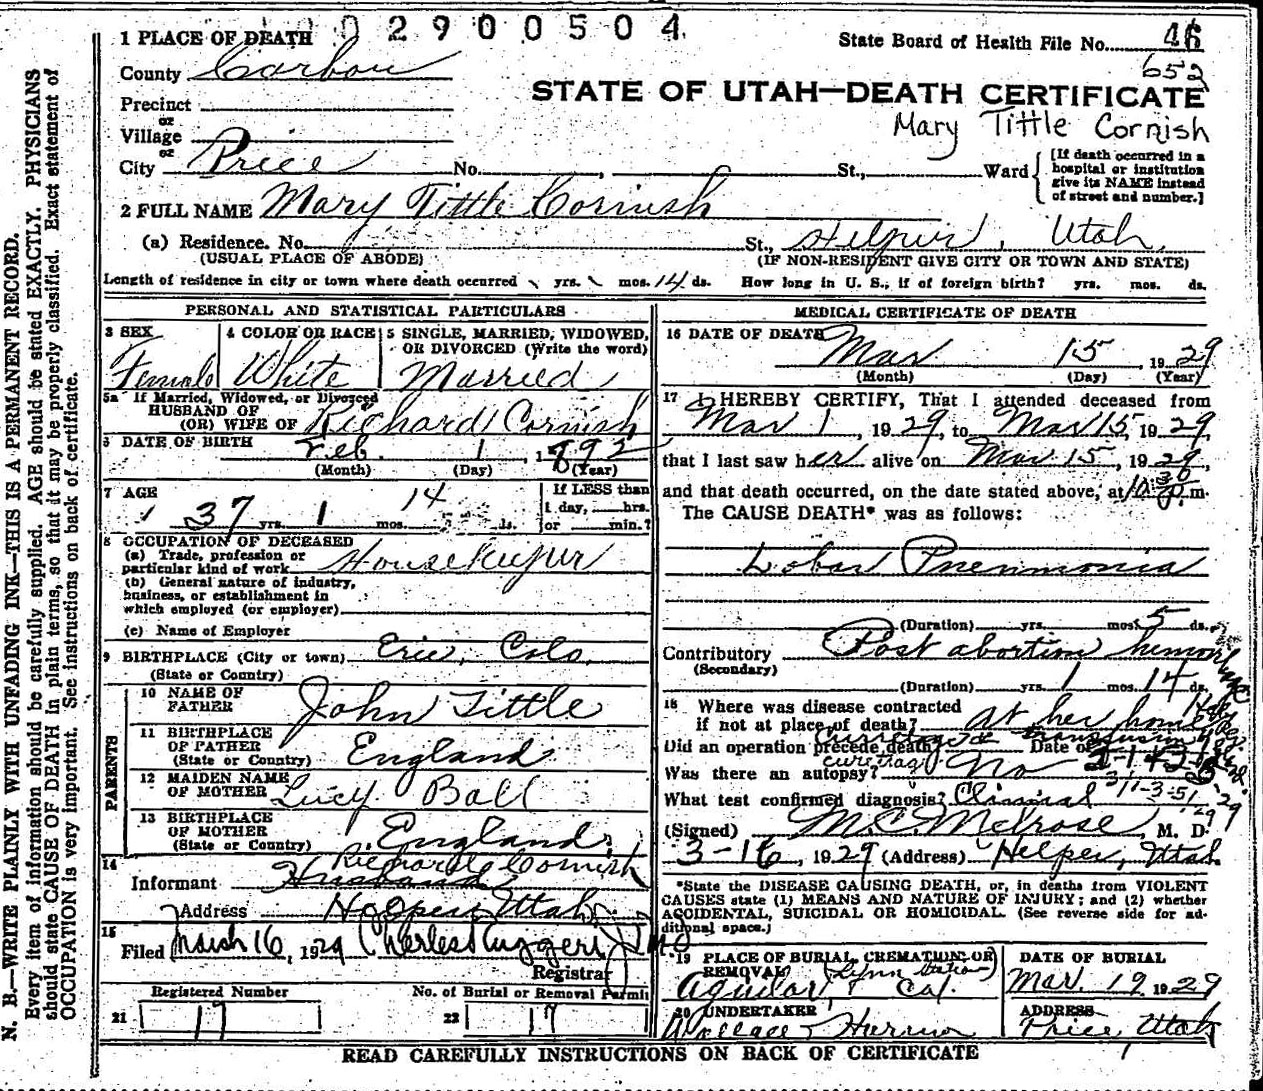 02900504
1 PLACE OF DEATH
State Board of Health File No. 46
652
County Carbon
STATE OF UTAH—DEATH CERTIFICATE
Precinct
or
Village
Mary Tittle Cornish
or
City Price No. , St., Ward
[If death occurred in a
hospital or institution
give its NAME instead
of street and number.]
2 FULL NAME Mary Tittle Cornish
(a) Residence. No. St., Helper, Utah
(USUAL PLACE OF ABODE) (IF NON-RESIDENT GIVE CITY OR TOWN AND STATE)
Length of residence in city or town where death occurred yrs. mos. 14 ds. How long in U. S., if of foreign birth? yrs. mos. ds.
PERSONAL AND STATISTICAL PARTICULARS
3 SEX 4 COLOR OR RACE 5 SINGLE, MARRIED, WIDOWED,
OR DIVORCED (Write the word)
Female White Married
5a If Married, Widowed, or Divorced
HUSBAND OF
(OR) WIFE OF Richard Cornish
6 DATE OF BIRTH Feb. 1, 1892
(Month) (Day) (Year)
7 AGE 37 yrs. 1 mos. 14 ds.
If LESS than
1 day, hrs.
or min.?
8 OCCUPATION OF DECEASED
(a) Trade, profession or
particular kind of work Housekeeper
(b) General nature of industry,
business, or establishment in
which employed (or employer)
(c) Name of Employer
9 BIRTHPLACE (City or town) Erie, Colo.
(State or Country)
PARENTS
10 NAME OF
FATHER John Tittle
11 BIRTHPLACE
OF FATHER
(State or Country) England
12 MAIDEN NAME
OF MOTHER Lucy Ball
13 BIRTHPLACE
OF MOTHER
(State or Country) England
14
Richard Cornish
Informant Husband
Address Helper, Utah
15
Filed March 16, 1929 Registrar
Registered Number No. of Burial or Removal Permit
21 17 22 17
MEDICAL CERTIFICATE OF DEATH
16 DATE OF DEATH Mar 15 1929
(Month) (Day) (Year)
17 I HEREBY CERTIFY, That I attended deceased from
Mar 1, 1929, to Mar 15, 1929,
that I last saw her alive on Mar 15, 1929,
and that death occurred, on the date stated above, at 10 30 p.m.
The CAUSE DEATH* was as follows:
Lobar Pneumonia
(Duration) yrs. mos. 5 ds.
Contributory Post abortion hemorrhage
(Secondary)
(Duration) yrs. 1 mos. 14 ds.
18 Where was disease contracted
if not at place of death? At her home
Did an operation precede death? Date of
curettage
Was there an autopsy? No
What test confirmed diagnosis? Clinical
(Signed) M.C. Melrose, M. D.
3-16, 1929 (Address) Helper, Utah
*State the DISEASE CAUSING DEATH, or, in deaths from VIOLENT
CAUSES state (1) MEANS AND NATURE OF INJURY; and (2) whether
ACCIDENTAL, SUICIDAL OR HOMICIDAL. (See reverse side for ad-
ditional space.)
19 PLACE OF BURIAL, CREMATION, OR
REMOVAL
Aguilar, Col.
DATE OF BURIAL
Mar. 19 1929
20 UNDERTAKER
Wallace & Harmon
ADDRESS
Price, Utah
READ CAREFULLY INSTRUCTIONS ON BACK OF CERTIFICATE
N. B.—WRITE PLAINLY WITH UNFADING INK—THIS IS A PERMANENT RECORD.
Every item of information should be carefully supplied. AGE should be stated EXACTLY. PHYSICIANS
should state CAUSE OF DEATH in plain terms, so that it may be properly classified. Exact statement of
OCCUPATION is very important. See instructions on back of certificate.